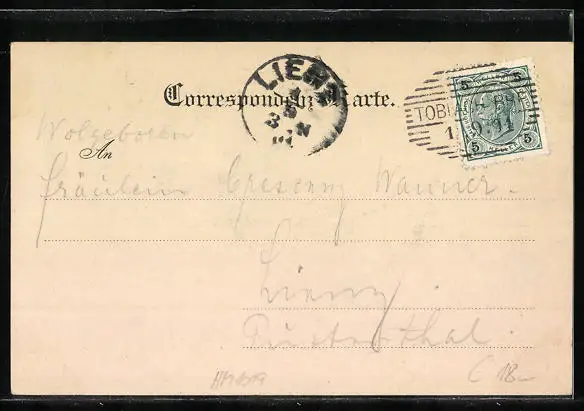 Correspondenz-Karte.
LIENZ
TOBLACH
5 5
5 5
Wolgeboren
An
Fräulein Crescenz Wanner.
Lienz
Pusterthal.
C 18.-